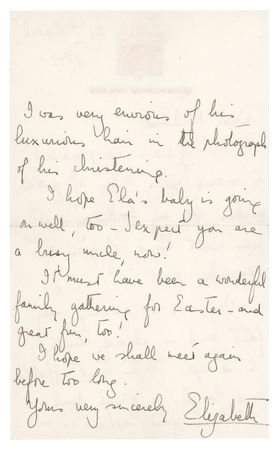 I was very envious of his
luxurious hair in the photograph
of his christening.
I hope Ela's baby is going
on well, too – I expect you are
a busy uncle, now!
It must have been a wonderful
family gathering for Easter – and
great fun, too!
I hope we shall meet again
before too long.
Yours very sincerely Elizabeth